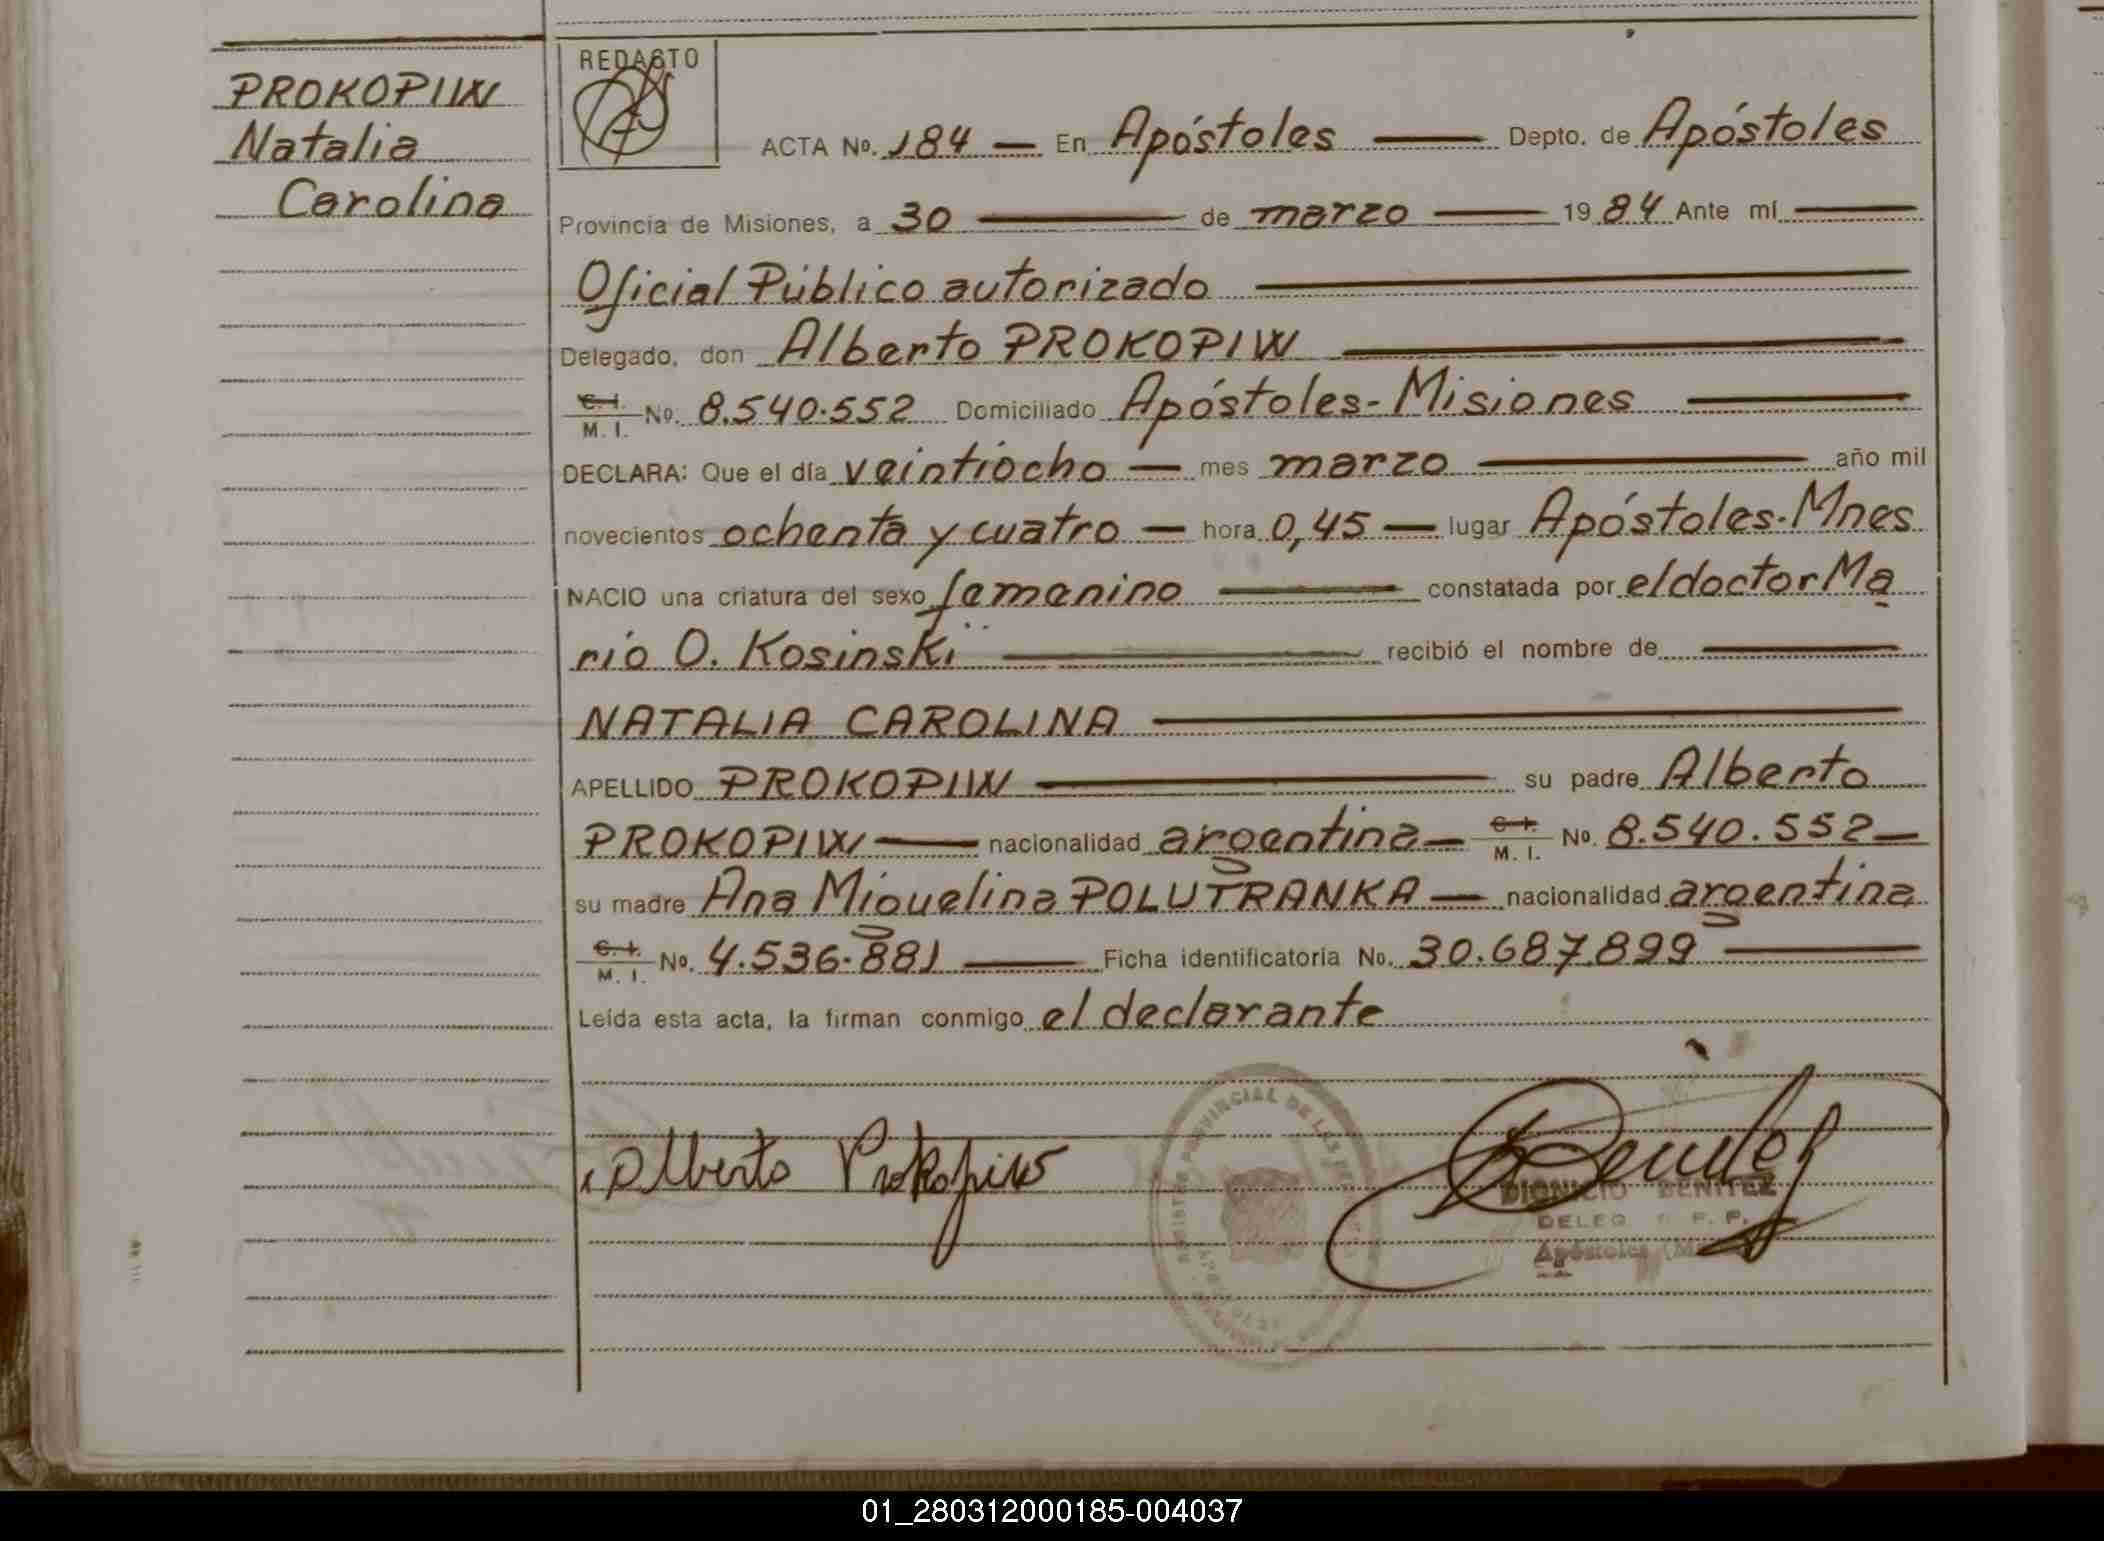 PROKOPIW
Natalia
Carolina
REDACTO
ACTA No. 184 — En Apóstoles — Depto. de Apóstoles
Provincia de Misiones, a 30 — de marzo — 1984 Ante mí —
Oficial Público autorizado —
Delegado, don Alberto PROKOPIW —
C. I. M. I. No. 8.540.552 Domiciliado Apóstoles-Misiones —
DECLARA: Que el día veintiocho — mes marzo — año mil
novecientos ochenta y cuatro — hora 0,45 — lugar Apóstoles-Mnes
NACIO una criatura del sexo femenino — constatada por el doctor Ma
rio O. Kosinski — recibió el nombre de —
NATALIA CAROLINA —
APELLIDO PROKOPIW — su padre Alberto
PROKOPIW — nacionalidad argentina — C. I. M. I. No. 8.540.552 —
su madre Ana Miguelina POLUTRANKA — nacionalidad argentina
C. I. M. I. No. 4.536.881 — Ficha identificatoria No. 30.687.899 —
Leída esta acta, la firman conmigo el declarante
Alberto Prokopiw
DIONICIO BENITEZ
DELEG
Apóstoles
01_280312000185-004037